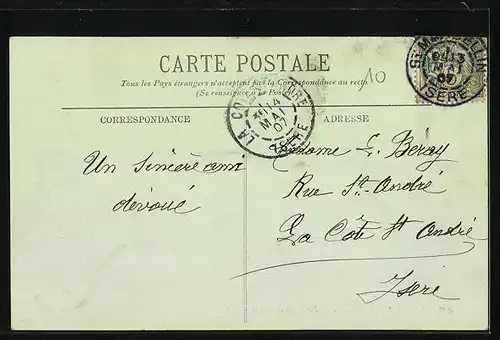 CARTE POSTALE
Tous les Pays étrangers n'acceptent pas la Correspondance au recto
(Se renseigner à la Poste)
10
ST MARCELLIN
13
MAI
07
ISÈRE
LA CÔTE ST ANDRE
14
MAI
07
ISÈRE
CORRESPONDANCE
ADRESSE
Un sincère ami
dévoué
Madame L. Béray
Rue St-André
La Côte St André
Isère